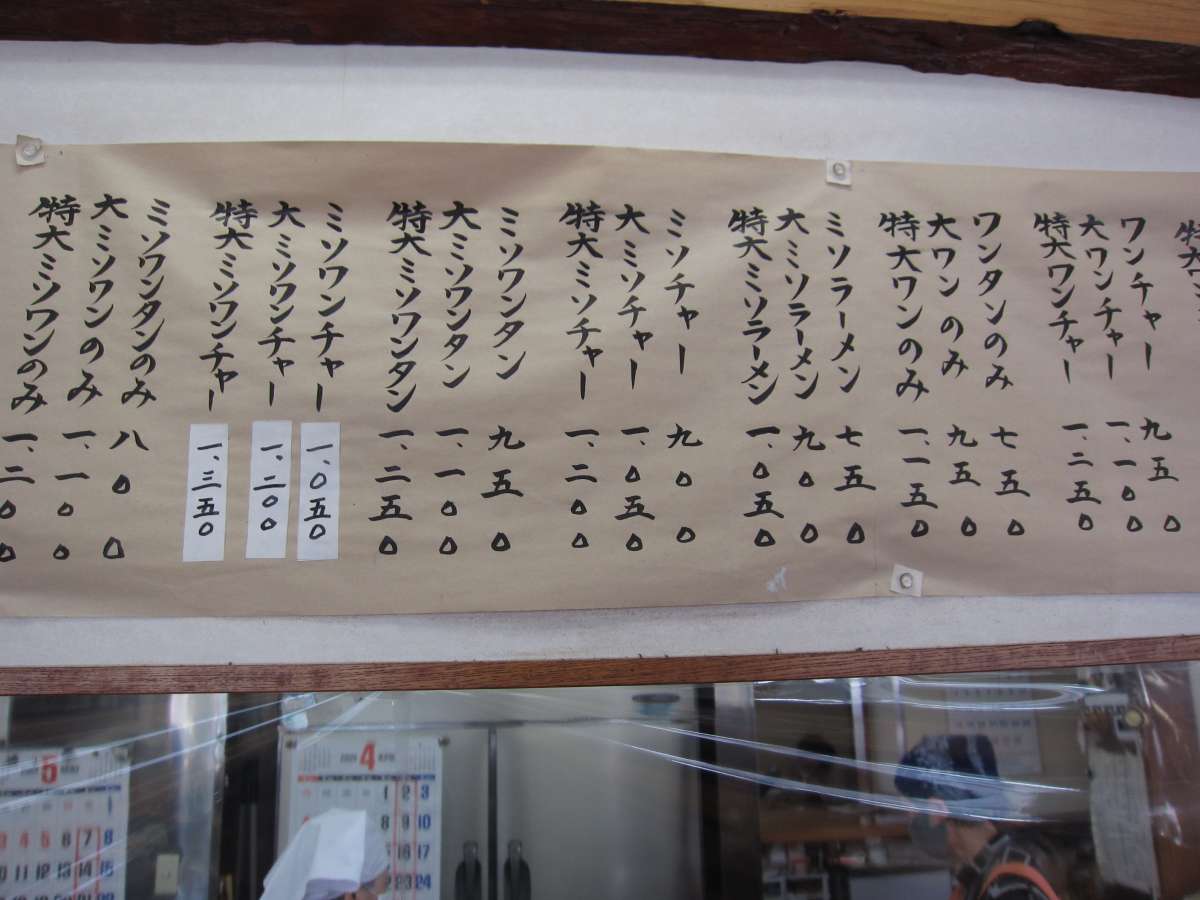 特大
ワンチャー 九五〇
大ワンチャー 一、一〇〇
特大ワンチャー 一、二五〇
ワンタンのみ 七五〇
大ワンのみ 九五〇
特大ワンのみ 一、一五〇
ミソラーメン 七五〇
大ミソラーメン 九〇〇
特大ミソラーメン 一、〇五〇
ミソチャー 九〇〇
大ミソチャー 一、〇五〇
特大ミソチャー 一、二〇〇
ミソワンタン 九五〇
大ミソワンタン 一、一〇〇
特大ミソワンタン 一、二五〇
ミソワンチャー 一、〇五〇
大ミソワンチャー 一、二〇〇
特大ミソワンチャー 一、三五〇
ミソワンタンのみ 八〇〇
大ミソワンのみ 一、一〇〇
特大ミソワンのみ 一、二〇〇
5
1
3 4 5 6 7 8
10 11 12 13 14 15
4
1 2 3
8 9 10
16 17
22 23 24